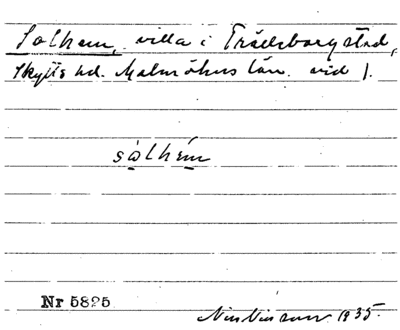 Solhem, villa i Trälleborg stad,
Skytts hd. Malmöhus län. vid 1.
sòlhém
Nr 5825
Nils Nilsson 1935.